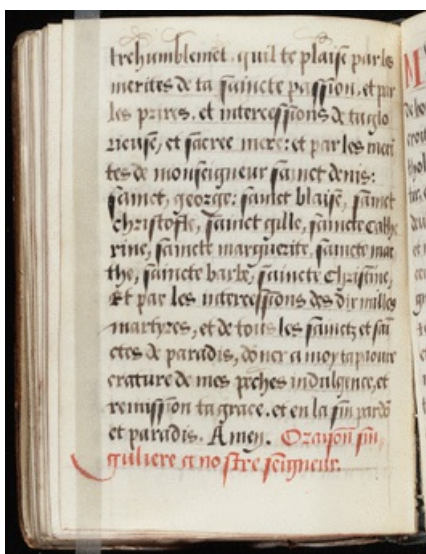 treshumblemēt. quil te plaise par les
merites de ta saincte passion, et par
les prires. et intercessions de ta glo
rieuse, et sacree mere: et par les meri
tes de monseigneur sainct denis:
sainct, george: sainct blaise, sainct
christofle, sainct gille, saincte Cathe
rine, saincte marguerite, saincte mar
the, saincte barbe, saincte Christine,
Et par les intercessions des dix milles
martyres, et de tous les sainctz et sai
ctes de paradis, dōner a moy ta pauure
creature de mes peches indulgence, et
remission ta grace. et en la fin pardō
et paradis. Amen. Orayson sin
guliere a nostre seigneur.